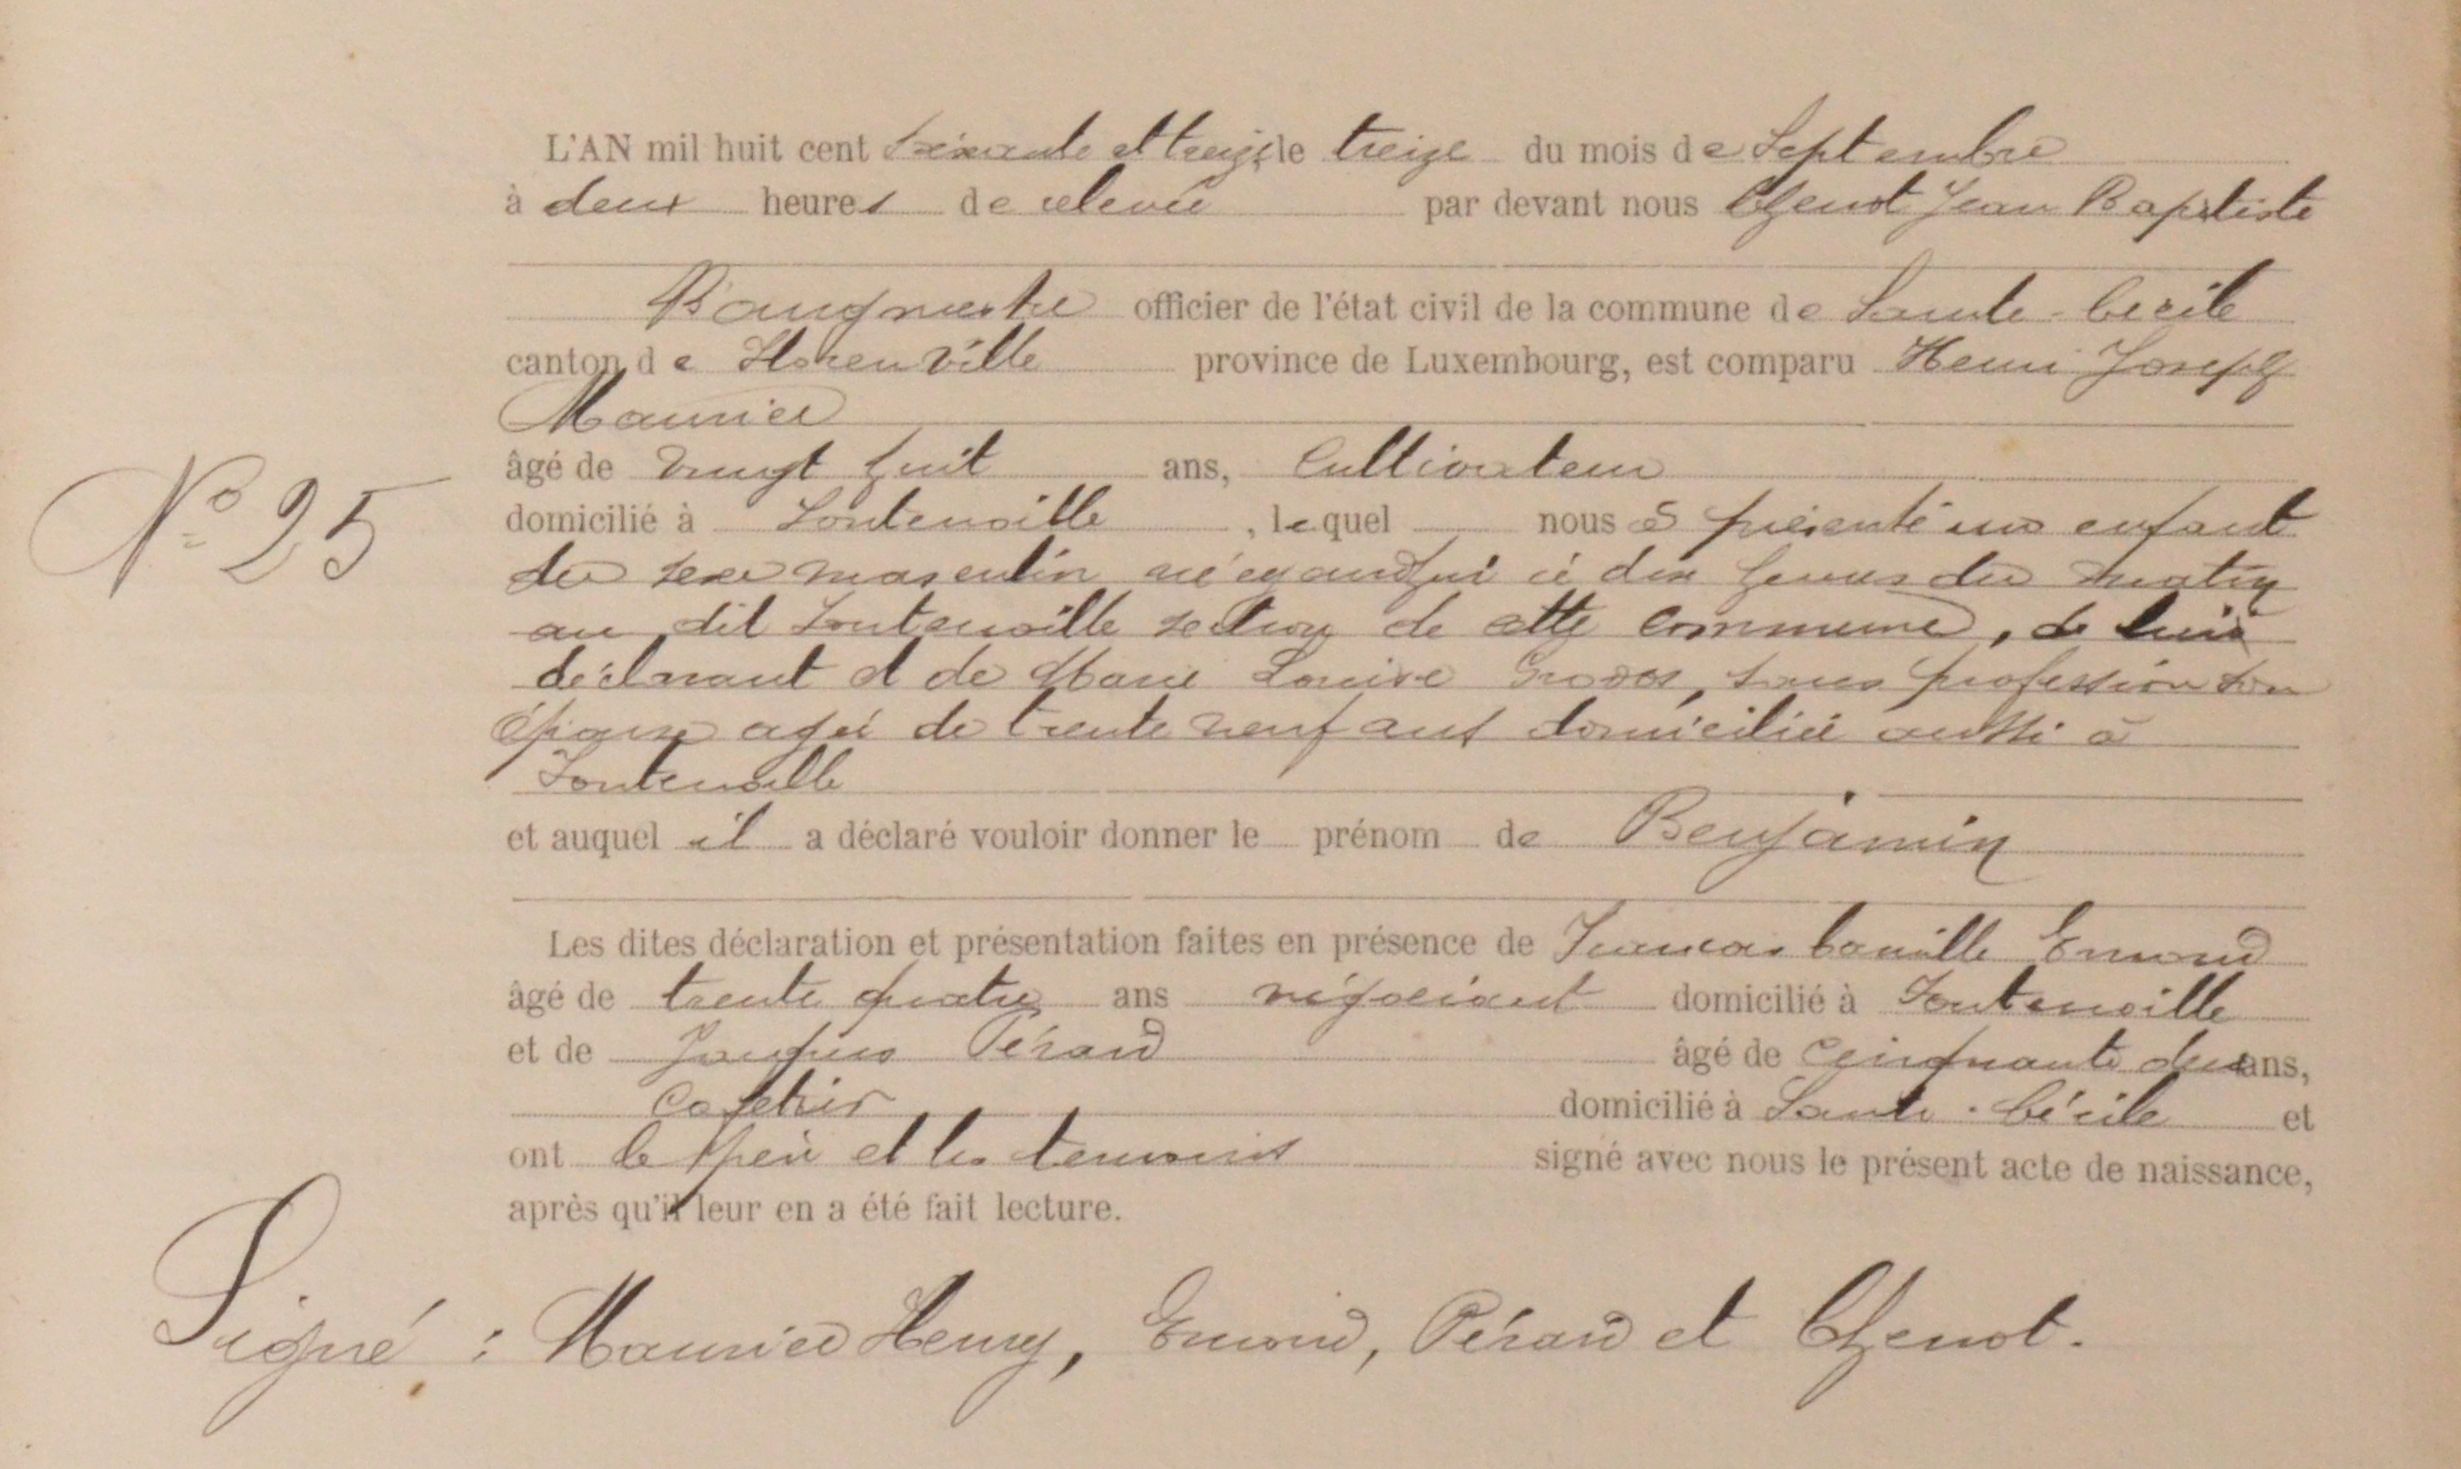 L'AN mil huit cent soixante et treize le treize du mois de Septembre
à deux heures de relevée par devant nous Chenot Jean Baptiste
Bourgmestre officier de l'état civil de la commune de Sainte-Cécile
canton de Florenville province de Luxembourg, est comparu Henri Joseph
Maurice
âgé de vingt huit ans, Cultivateur
domicilié à Fontenoille, lequel nous a présenté un enfant
N° 25
du sexe masculin né aujourd'hui à dix heures du matin
au dit Fontenoille section de cette commune, de lui
déclarant et de Marie Louise sans profession son
épouse agée de trente neuf ans domiciliée aussi à
Fontenoille
et auquel il a déclaré vouloir donner le prénom de Benjamin
Les dites déclaration et présentation faites en présence de François Camille Emond
âgé de trente quatre ans négociant domicilié à Fontenoille
et de Jacques Pérard âgé de cinquante deux ans,
Cafetier domicilié à Sainte-Cécile et
ont le père et les temoins signé avec nous le présent acte de naissance,
après qu'il leur en a été fait lecture.
Signé : Maurice Henry, Emond, Pérard et Chenot.